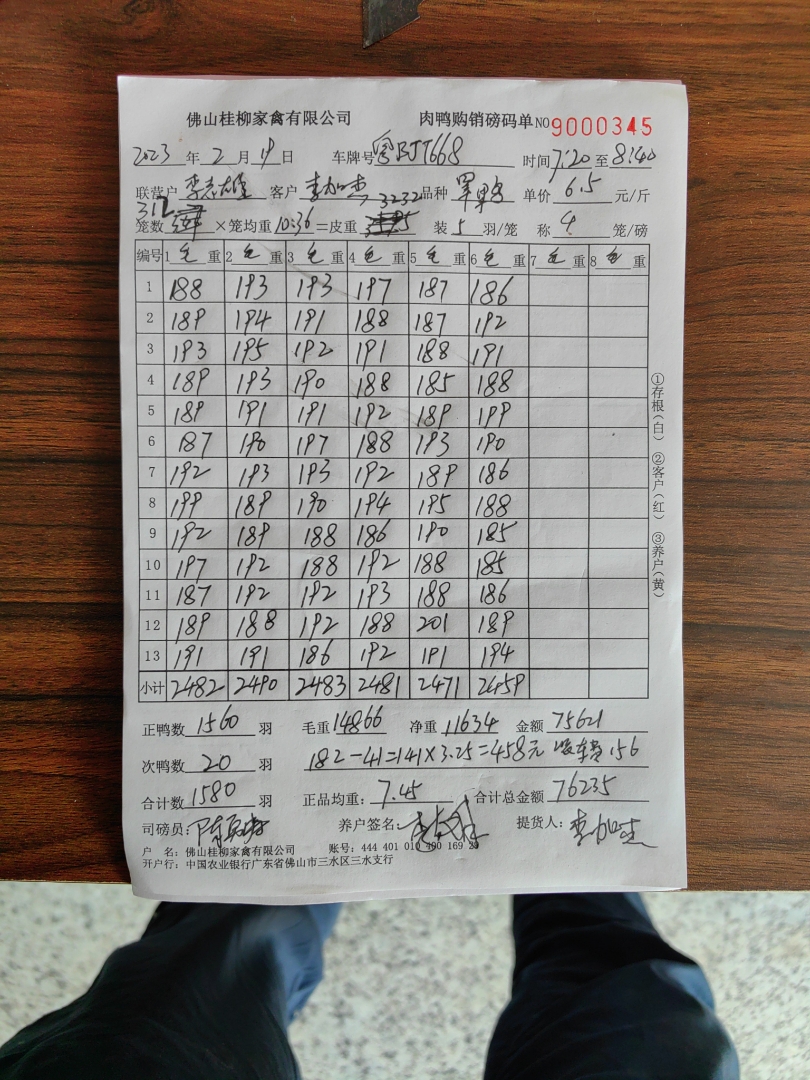 佛山桂柳家禽有限公司 肉鸭购销磅码单 NO 9000345
2023 年 2 月 19 日 车牌号 粤BJT668 时间 7:20 至 8:40
联营户 李志雄 客户 李加杰 品种 单价 6.5 元/斤
笼数 312 ×笼均重 10.36 =皮重 3232 装 5 羽/笼 称 4 笼/磅
编号 1 毛 重 2 毛 重 3 毛 重 4 毛 重 5 毛 重 6 毛 重 7 毛 重 8 毛 重
1 188 193 193 197 187 186
2 189 194 191 188 187 192
3 193 195 192 191 188 191
4 189 193 190 188 185 188
5 189 191 191 192 189 199
6 187 190 197 188 193 190
7 192 193 193 192 189 186
8 199 189 190 194 195 188
9 192 189 188 186 190 185
10 197 192 188 192 188 185
11 187 192 192 193 188 186
12 189 188 192 188 201 189
13 191 191 186 192 191 194
小计 2482 2490 2483 2481 2471 2459
正鸭数 1560 羽 毛重 14866 净重 11634 金额 75621
次鸭数 20 羽 182-41=141×3.25=458元 156
合计数 1580 羽 正品均重: 7.45 合计总金额 76235
司磅员: 养户签名: 提货人: 李加杰
户 名: 佛山桂柳家禽有限公司 账号: 444 401 010 400 169 2
开户行: 中国农业银行广东省佛山市三水区三水支行
①存根(白) ②客户(红) ③养户(黄)